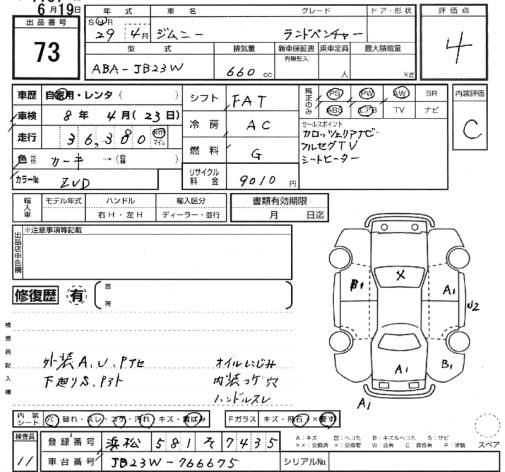 6月19日
出品番号 73
年式 車名 グレード ドア・形状 評価点
SHR
29年 4月 ジムニー ランドベンチャー 4
型式 排気量 新車保証書 乗車定員 最大積載量
有 機記入
ABA-JB23W 660 cc 人 kg
車歴 自家用・レンタ( )
車検 8年 4月(23日)
走行 36,380 km マイル
色 元色 カーキ → 色替( )
カラーNo ZVD
シフト FAT
冷房 AC
燃料 G
リサイクル料金 9010円
純正のみ PS PW AW SR
ABS エアB TV ナビ
セールスポイント
カロッツェリアナビ
フルセグTV
シートヒーター
内装評価 C
輸入車 モデル年式 ハンドル 輸入区分 書類有効期限
年 右H・左H ディーラー・並行 月 日迄
出品店申告欄 ※注意事項等記載
修復歴 有
箇所
検査員記入欄
外装A、U、Pナセ オイルにじみ
下廻りS、Pヌト 内装コゲ穴
ハンドルスレ
B1 X A1 U2
A1 B1
A1
内装シート 穴 破れ・スレ・コゲ・汚れ・キズ・黄ばみ Fガラス キズ・飛石・X・要す
A:キズ 凹:ヘコミ B:キズ&ヘコミ S:サビ
XX:交換済 X:交換要 W:波 C:腐食 P:塗装 スペア
検査員 11
登録番号 浜松 581 そ 7435
車台番号 JB23W-766675 シリアルNo.